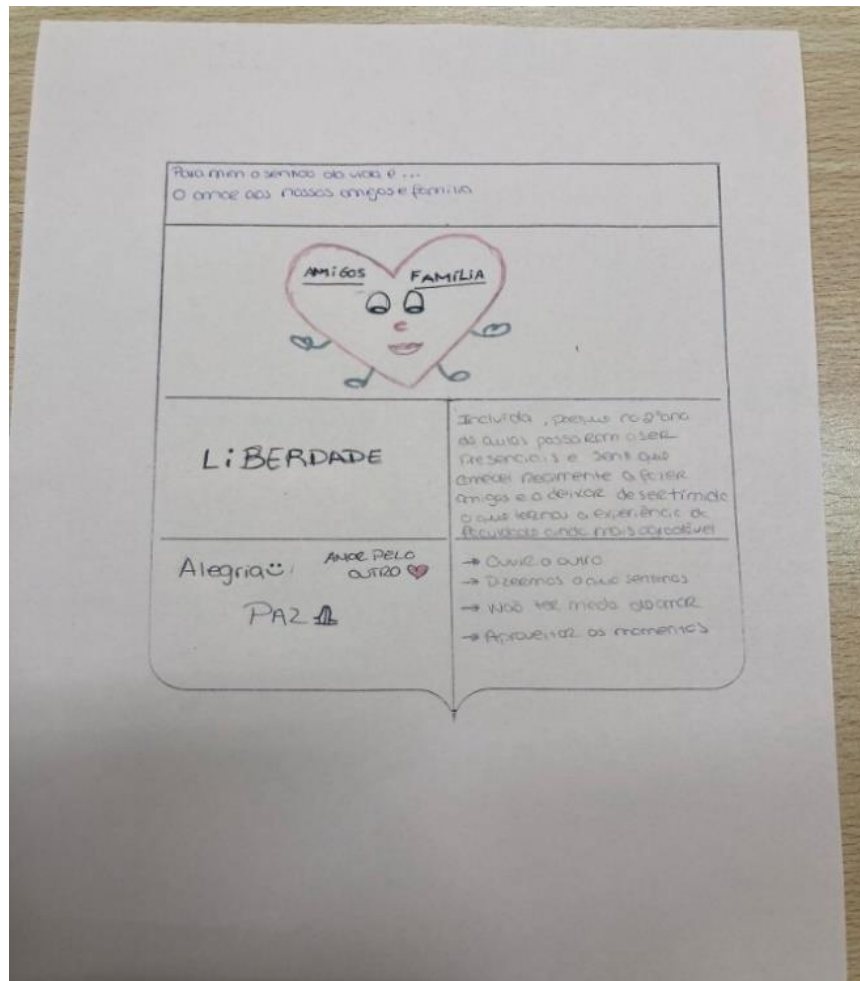 Para mim o sentido da vida é ...
O amor aos nossos amigos e família
AMIGOS FAMÍLIA
LIBERDADE
Incluída, porque no 2º ano
as aulas passaram a ser
presenciais e sent que
comecei realmente a fazer
amigos e a deixar de ser tímida
o que tornou a experiência da
faculdade ainda mais agradável
Alegria
AMOR PELO
OUTRO
PAZ
→ Ouvir o outro
→ Dizermos o que sentimos
→ Não ter medo de amar
→ Aproveitar os momentos